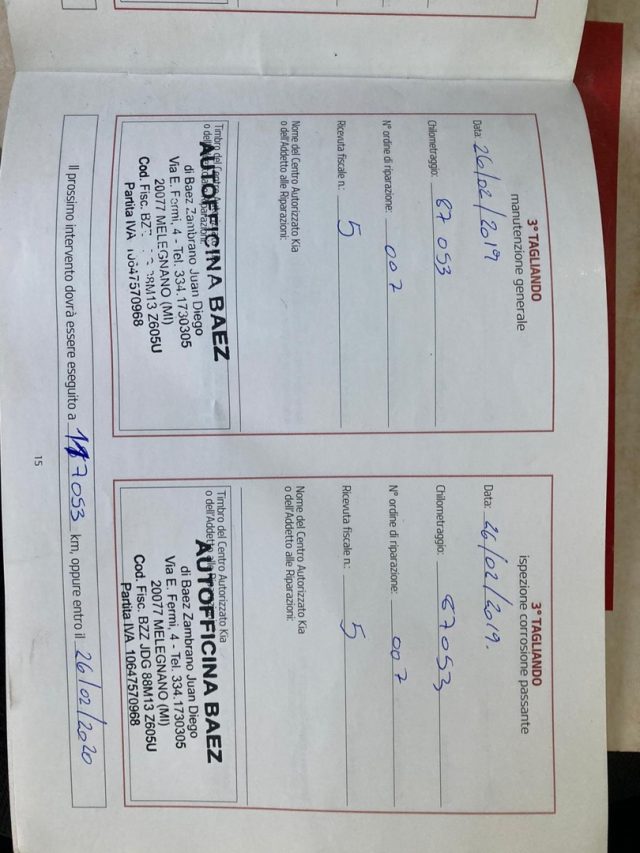 3° TAGLIANDO
manutenzione generale
Data: 26/02/2019
Chilometraggio: 87053
N° ordine di riparazione: 007
Ricevuta fiscale n.: 5
Nome del Centro Autorizzato Kia
o dell'Addetto alle Riparazioni:
Timbro del Centro Autorizzato Kia
o dell'Addetto alle Riparazioni:
AUTOFFICINA BAEZ
di Baez Zambrano Juan Diego
Via E. Fermi, 4 - Tel. 334.1730305
20077 MELEGNANO (MI)
Cod. Fisc. BZZ 88M13 Z605U
Partita IVA 10647570968
3° TAGLIANDO
ispezione corrosione passante
Data: 26/02/2019.
Chilometraggio: 87053
N° ordine di riparazione: 007
Ricevuta fiscale n.: 5
Nome del Centro Autorizzato Kia
o dell'Addetto alle Riparazioni:
Timbro del Centro Autorizzato Kia
o dell'Addetto alle Riparazioni:
AUTOFFICINA BAEZ
di Baez Zambrano Juan Diego
Via E. Fermi, 4 - Tel. 334.1730305
20077 MELEGNANO (MI)
Cod. Fisc. BZZ JDG 88M13 Z605U
Partita IVA 10647570968
Il prossimo intervento dovrà essere eseguito a 117053 km, oppure entro il 26/02/2020
15